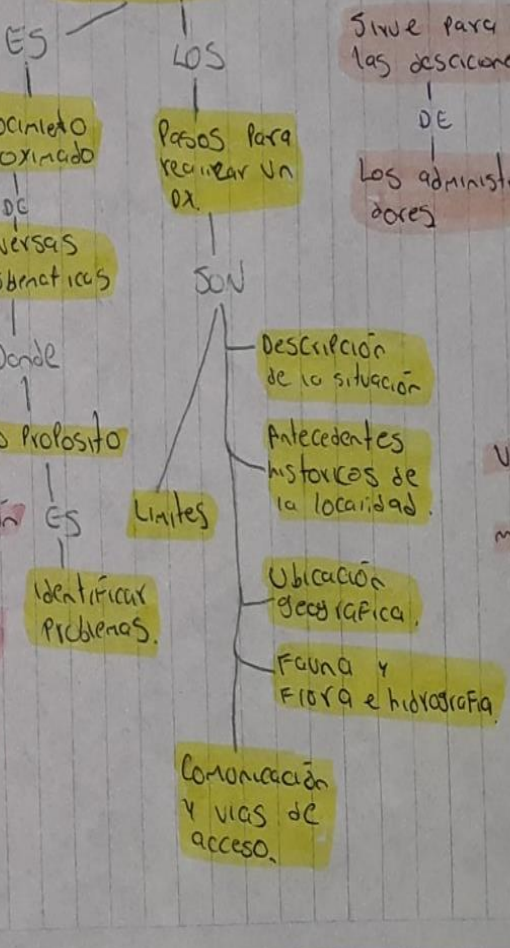 ES
ocimieto
oximado
DE
versas
Donde
Proposito
ES
identificar
Problemas.
LOS
Pasos Para
realizar un
DX.
SON
Limites
Descripción
de la situación
Antecedentes
historicos de
la localidad.
Ubicación
geografica.
Fauna y
Flora e hidrografia.
Comunicación
y vias de
acceso.
Sirve para
las descicione
DE
Los administ
dores